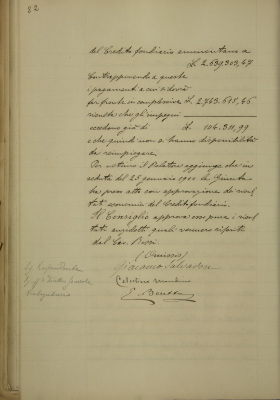 82
del Credito fondiario ammontano a
£. 2.639.303,67
Contrapponendo a queste
i pagamenti a cui si dovrà
far fronte in complessive £. 2.743.615,66
risulta che gli impegni
eccedono già di £. 104.311,99
e che quindi non si hanno disponibilità
da reimpiegare.
Per notizia il Relatore aggiunge che in
seduta del 25 gennaio 1900 la Giunta
ha preso atto con approvazione dei risul
tati economici del Credito fondiario.
Il Consiglio approva con pure i risul
tati suddetti quali vennero riferiti
dal Cav. Bossi.
(Omissis)
Giacomo Salvadori
Celestino
E.